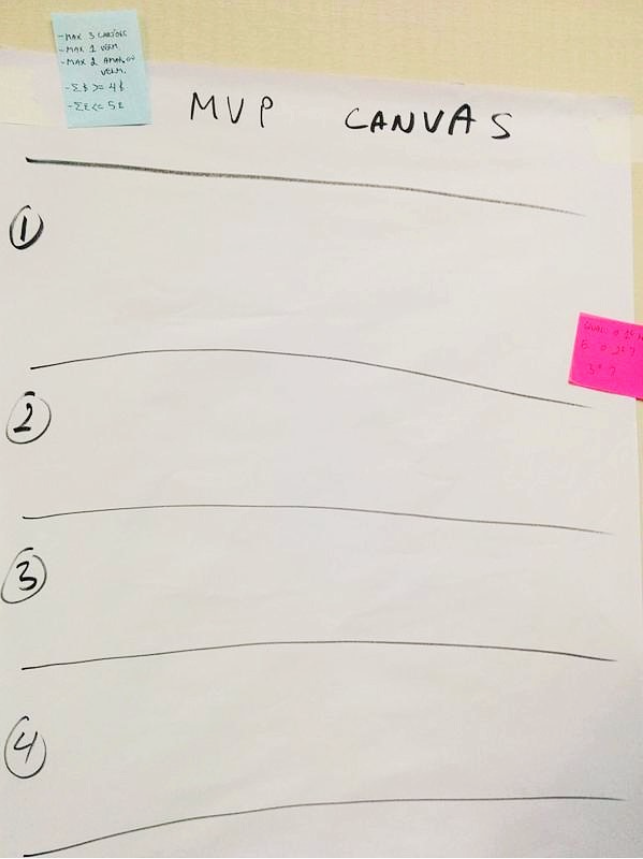 - MAX 3 CARTÕES
- MAX 1 VERM
- MAX 2 AMAR OU
VERM.
- Σ$ >= 4$
- ΣE <= 5E
MVP CANVAS
1
QUAL O 1º
E O 2º?
3º?
2
3
4